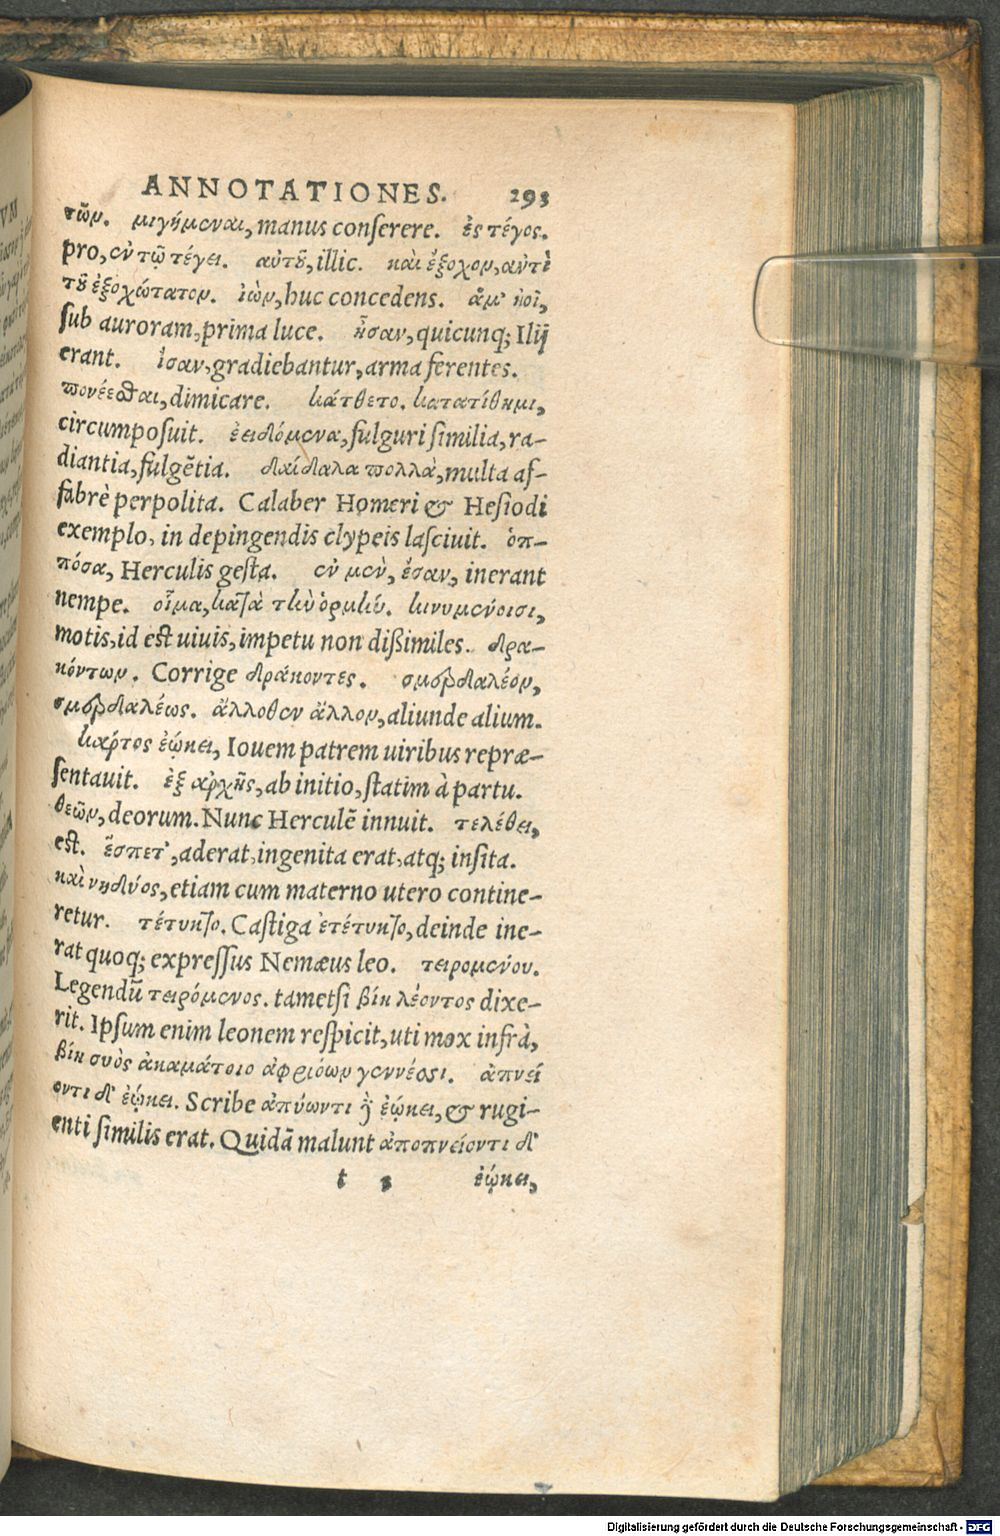 ANNOTATIONES. 293
τῶν. μιγήμεναι, manus conserere. ἐς τέγος.
pro, ἐν τῷ τέγει. αὐτοῦ, illic. καὶ ἔξοχον, αὐτὶ
τοῦ ἐξοχώτατον. ἰὼν, huc concedens. ἅμ' ἠοῖ,
sub auroram, prima luce. ἦσαν, quicunq; Ilij
erant. ἴσαν, gradiebantur, arma ferentes.
πονέεσθαι, dimicare. κάτθετο. κατατίθημι,
circumposuit. ἐειδόμενα, fulguri similia, ra-
diantia, fulgẽtia. δαίδαλα πολλὰ, multa af-
fabrè perpolita. Calaber Homeri & Hesiodi
exemplo, in depingendis clypeis lasciuit. ὁπ-
πόσα, Herculis gesta. ἐν μὲν, ἔσαν, inerant
nempe. οἶμα, κατὰ τὴν ὁρμὴν. κινυμένοισι,
motis, id est uiuis, impetu non dißimiles. δρα-
κόντων. Corrige δράκοντες. σμερδαλέον,
σμερδαλέως. ἄλλοθεν ἄλλον, aliunde alium.
κάρτος ἐῴκει, Iouem patrem uiribus repræ-
sentauit. ἐξ αρχῆς, ab initio, statim à partu.
θεῶν, deorum. Nunc Herculẽ innuit. τελέθει,
est. ἕσπετ', aderat, ingenita erat, atq; insita.
καὶ νηδύος, etiam cum materno utero contine-
retur. τέτυκτο. Castiga ἐτέτυκτο, deinde ine-
rat quoq; expressus Nemæus leo. τειρομένου.
Legendũ τειρόμενος. tametsi βίη λέοντος dixe-
rit. Ipsum enim leonem respicit, uti mox infrà,
βίη συὸς ἀκαμάτοιο ἀφριόων γεννέεσι. ἀπνεί
οντι δ' ἐῴκει. Scribe απύωντι δ' ἐῴκει, & rugi-
enti similis erat. Quidã malunt ἀποπνείοντι δ'
t 3 ἐῴκει,
Digitalisierung gefördert durch die Deutsche Forschungsgemeinschaft - DFG